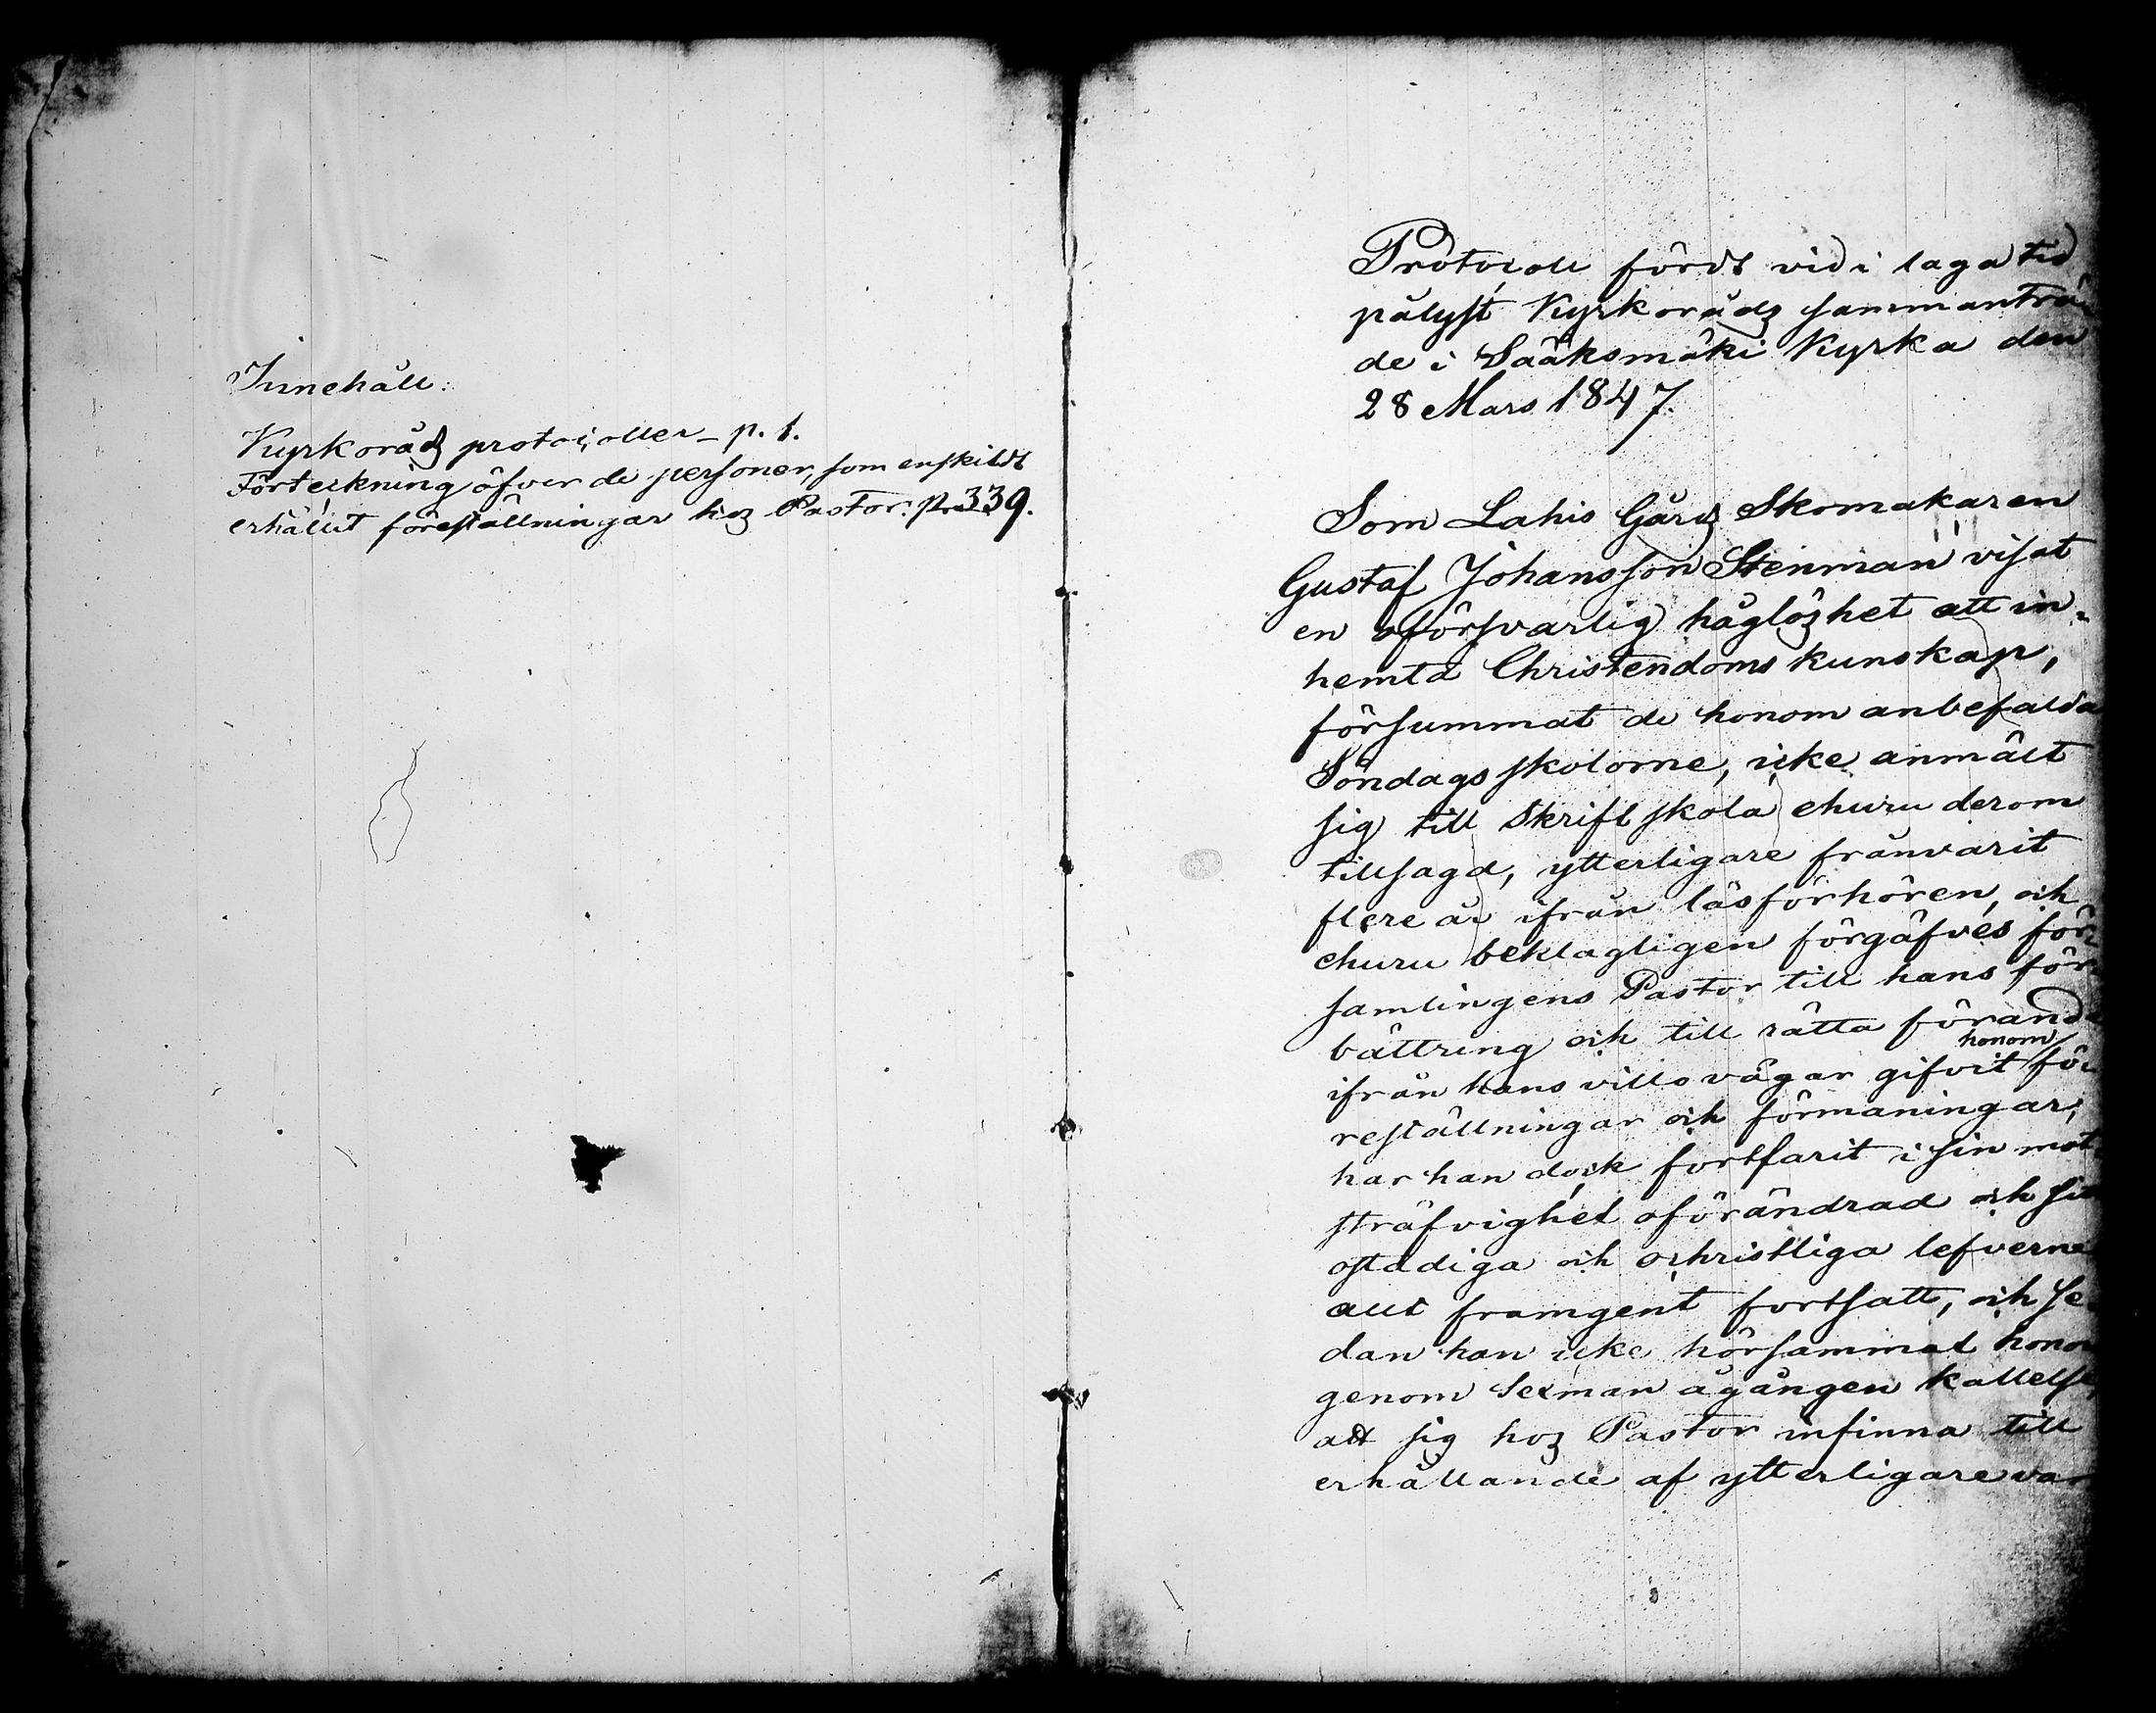 Innehåll:
Kyrkoråds protocoller – p. 1.
Förteckning öfver de personer, som enskildt
erhållit föreställningar hos Pastor. p. 339.
Protocoll fördt vid i laga tid
pålyst Kyrkoråds sammanträ-
de i Sääksmäki Kyrka den
28 Mars 1847.
Som Lahis Gårds Skomakaren
Gustaf Johansson Stenman visat
en oförsvarlig håglöshet att in-
hemta Christendoms kunskap,
försummat de honom anbefalda
Söndags skolorne, icke anmält
sig till Skriftskola ehuru derom
tillsagd, ytterligare frånvarit
flere år ifrån läsförhören, och
ehuru beklagligen förgäfves för-
samlingens Pastor till hans för-
bättring och till rätta förande
ifrån hans villo vägar gifvit honom fö-
reställningar och förmaningar,
har han dock fortfarit i sin mot-
sträfvighet oförändrad och sitt
ostadiga och ochristliga lefverne
allt framgent fortsatt, och se-
dan han icke hörsammat honom
genom Sexman ågången kallelse,
att sig hos Pastor infinna till
erhållande af ytterligare var